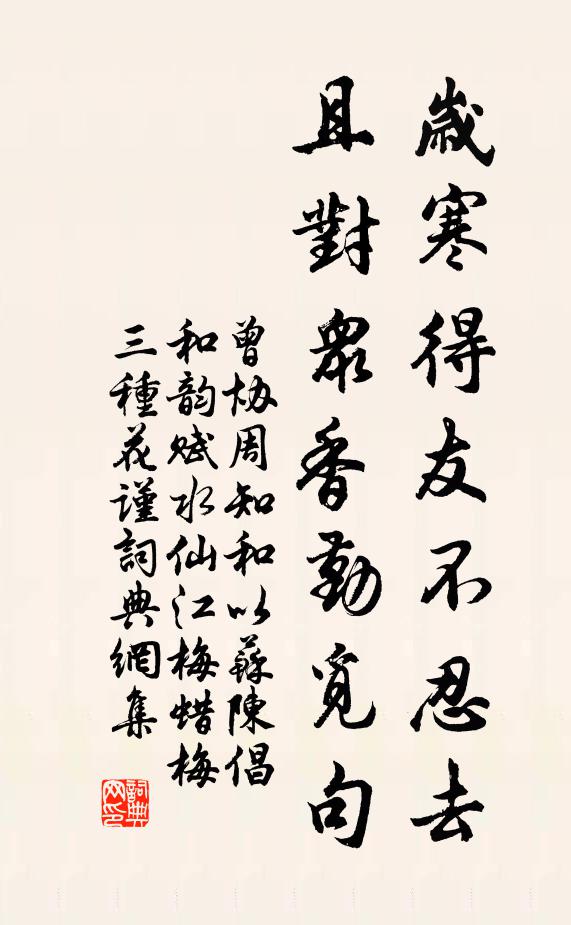 歲寒得友不忍去
且對衆香勤覓句
曾协周知和以蘇陳倡
和韵赋水仙江梅蜡梅
三種花谨詞典網集
詞典网印